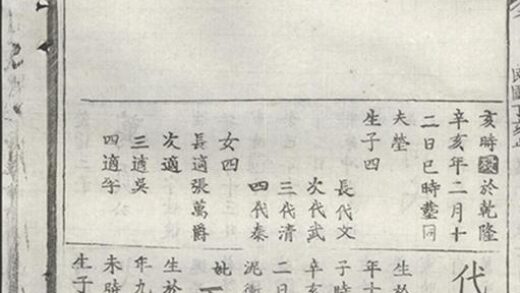 亥時歿於乾隆
辛亥年二月十
二日巳時塟同
夫塋
生子四
長代文
次代武
三代清
四代秦
女四
長適張萬爵
次適
三適吳
四適牟
代
生於
年十
子時
辛亥
二日
泥衝
妣
生於
年九
未時
生子